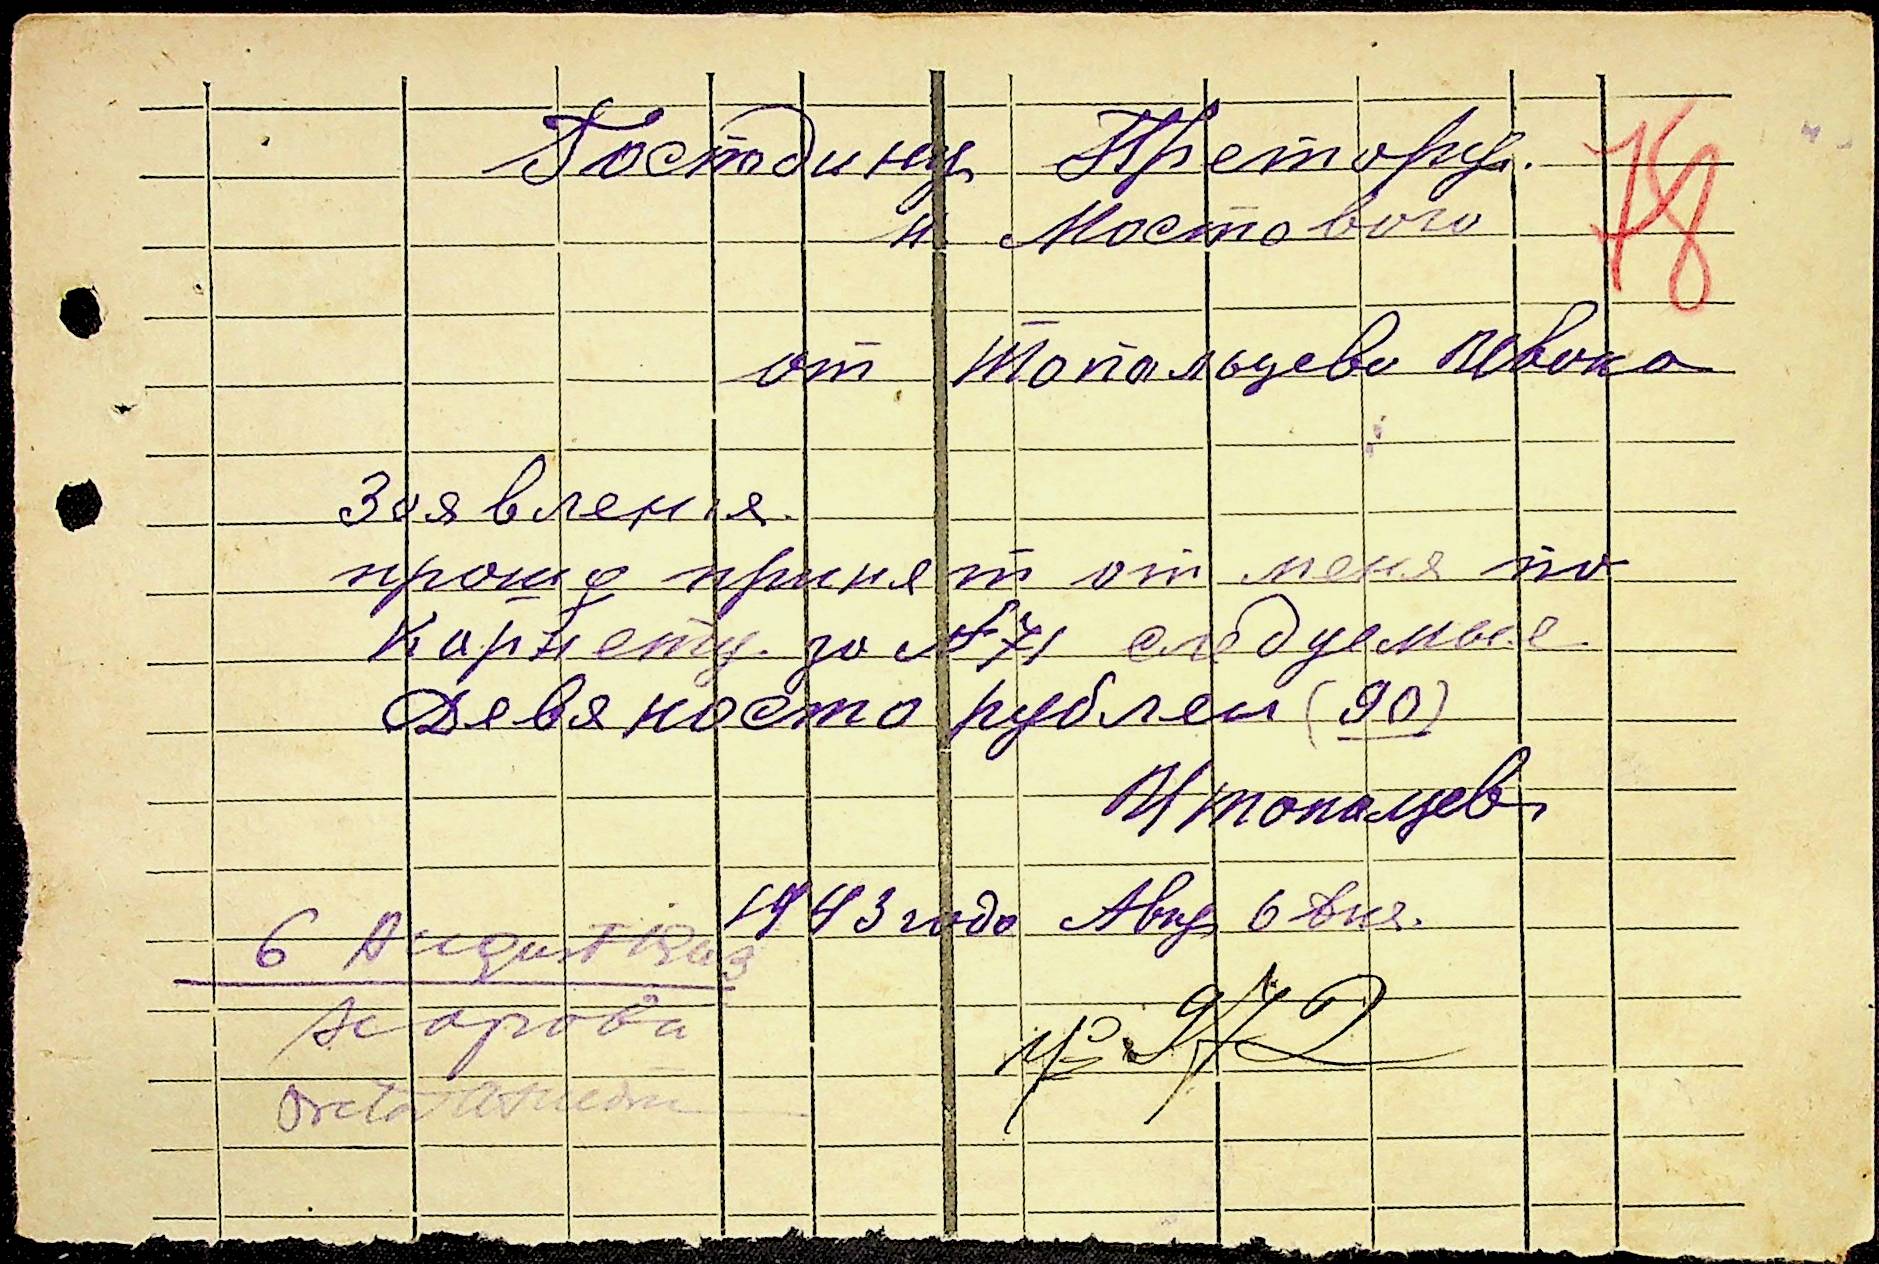 Господину Претору.
78
н Мостового
от Топальцева Ивана
Заявления.
прошу принят от меня по
Карнету за № 71 следуемые
Девяносто рублеи (90)
И Топалцев
1943 года Авг 6 дня.
6 August 1943
№ 972